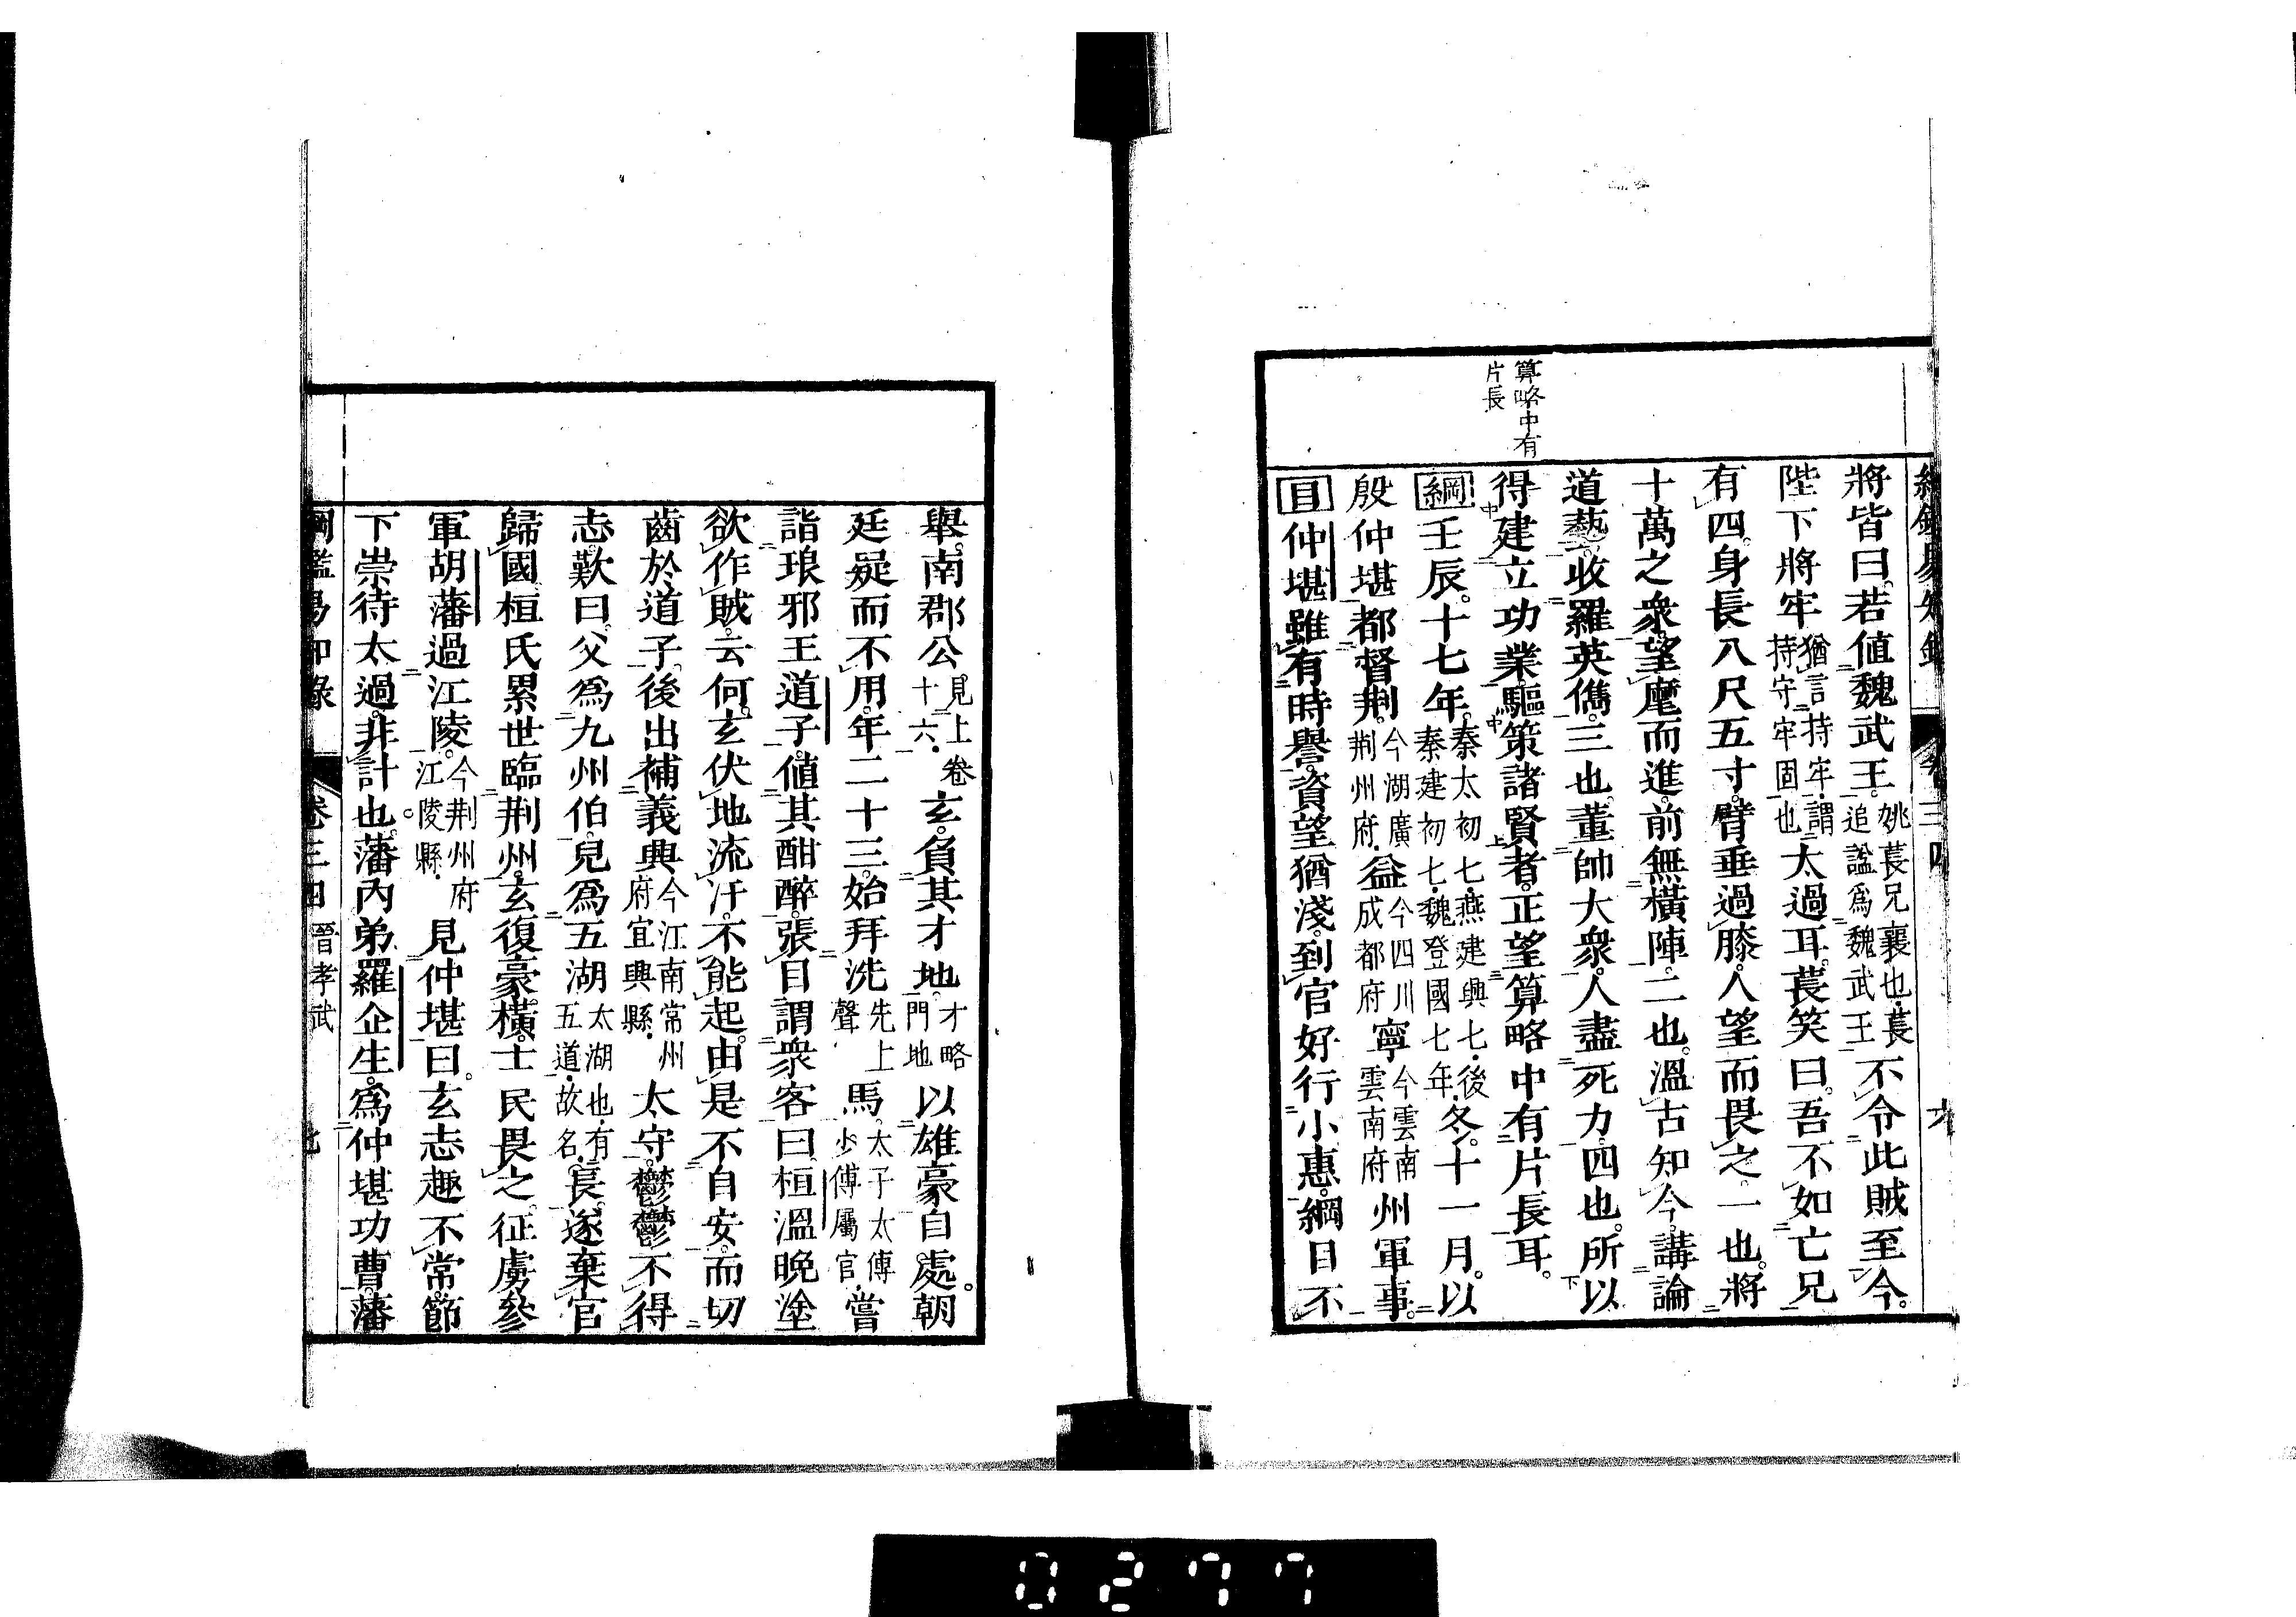 算略中有
片長
將皆曰。若値魏武王。姚萇兄襄也。萇追諡爲魏武王不令此賊至今。
陛下將牢猶言持牢。謂持守牢固也太過耳。萇笑曰。吾不如亡兄
有四。身長八尺五寸。臂垂過膝。人望而畏之。一也。將
十萬之衆。望麾而進。前無橫陣。二也。溫古知今。講論
道藝。收羅英儁。三也。董帥大衆。人盡死力。四也。所以
得建立功業。驅策諸賢者。正望算略中有片長耳。
綱壬辰。十七年。秦太初七。燕建興七。後秦建初七。魏登國七年。冬。十一月。以
殷仲堪都督荆。今湖廣荆州府。益今四川成都府寧今雲南雲南府州軍事。
目仲堪雖有時譽。資望猶淺。到官好行小惠。綱目不
舉。南郡公。見上卷十六。玄。負其才地。才略門地以雄豪自處。朝
廷疑而不用。年二十三。始拜洗先上聲馬。太子太傅少傅屬官。嘗
詣琅邪王道子。値其酣醉。張目謂衆客曰。桓溫晚塗
欲作賊。云何。玄伏地流汗。不能起。由是不自安。而切
齒於道子。後出補義興今江南常州府宜興縣。太守。鬱鬱不得
志。歎曰。父爲九州伯。兒爲五湖太湖也。有五道。故名。長。遂棄官
歸國。桓氏累世臨荆州。玄復豪橫。士民畏之。征虜參
軍胡藩過江陵。今荆州府江陵縣。見仲堪曰。玄志趣不常。節
下崇待太過。非計也。藩内弟羅企生。爲仲堪功曹。藩
綱鑑易知錄 卷三四 晉孝武